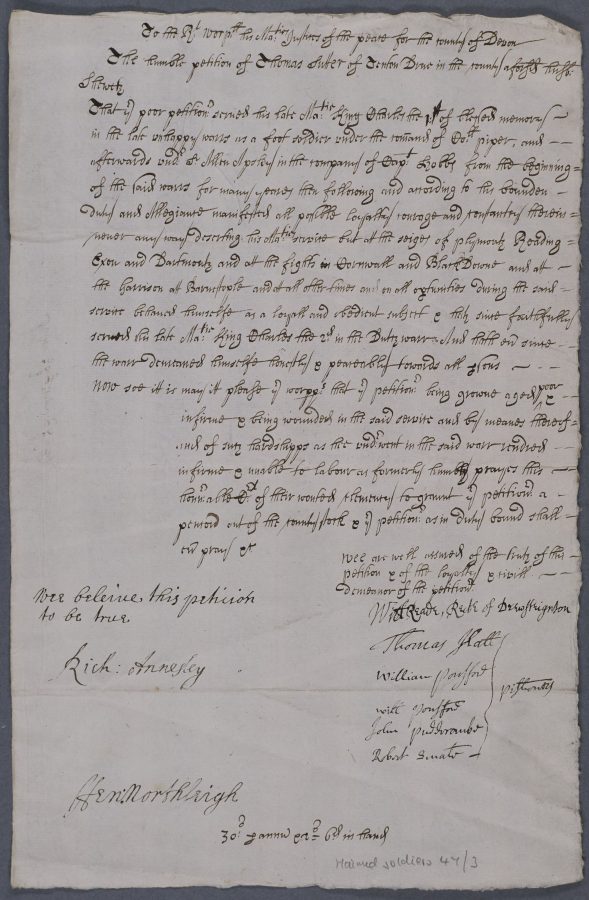 To the Rt worpll his Maties Justices of the peace for the county of Devon
The humble petition of Thomas in the county aforesd husb
Sheweth
That yr poor petitionr served his late Matie King Charles the 1st of blessed memory
in the late unhappy warrs as a foot soldier under the comand of Coll piper, and
afterwards undr Sr Allen Apsley in the company of Capt from the beginning
of the said warrs for many yeares then following and according to his bounden
duty and Allegiance manifested all posible loyalty courage and constancy therein
never any ways deserting his Maties service but at the seiges of plymouth Reading
Exon and Dartmouth and at the fights in Cornwall and Black Downe and at
the Garrison at Barnstaple and at all other times and on all opertunities during the said
service behaved himselfe as a loyall and obedient subject & hath since faithfully
served his late Matie King Charles the 2d in the Dutch warr And hath evr since
the warr demeaned himselfe honestly & peaceably towards all psons
Now soe it is may it please yr worpps that yr petitionr being growne aged poor &
infirme & being wounded in the said service and by meanes thereof
and of such hardshipps as he undrwent in the said warr rendred
infirme & unable to labour as formerly humbly prayes this
honrable Ct of their wonted clemency to graunt yr petitionr a
pencon out of the county stock & yr petitionr as in duty bound shall
evr pray &c
wee are well assured of the truth of this
petition & of the loyalty & civill
demeanor of the petitionr
Wee beleive this peticion
to be true
Will Reade, Rectr of Drewsteignton
Thomas Hall
Rich: Annesley
William Ponsford
pishoners
will Ponsford
John Puddicombe
Robert
Hen: Northleigh
30s p annu & 2s 6d in hand
Maimed soldiers 47/3